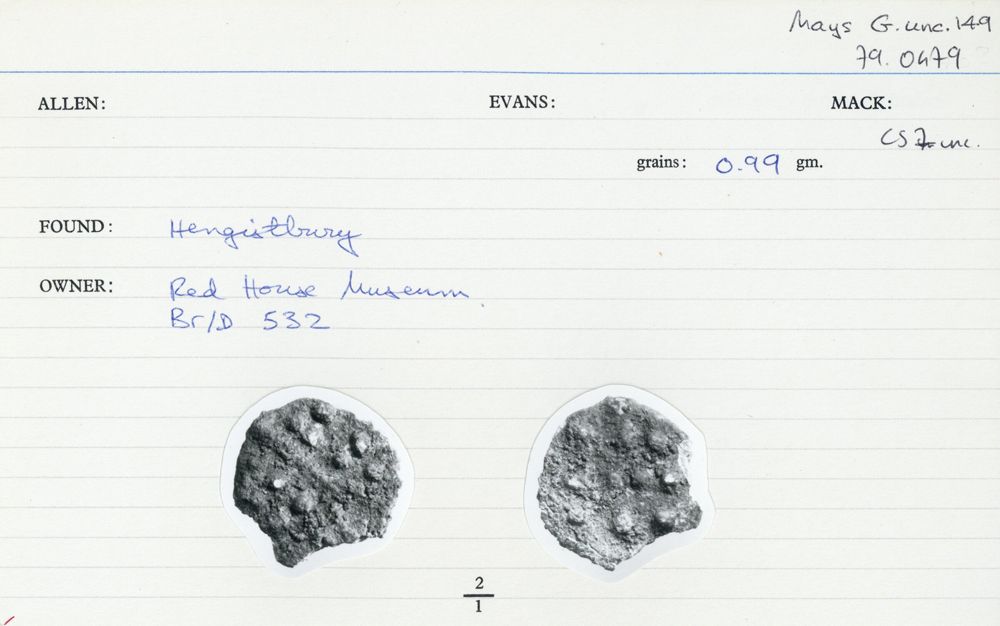 Mays G.unc.149
79.0479
ALLEN: EVANS: MACK:
CS 7 unc.
grains: 0.99 gm.
FOUND: Hengistbury
OWNER: Red House Museum
Br/D 532
2
1